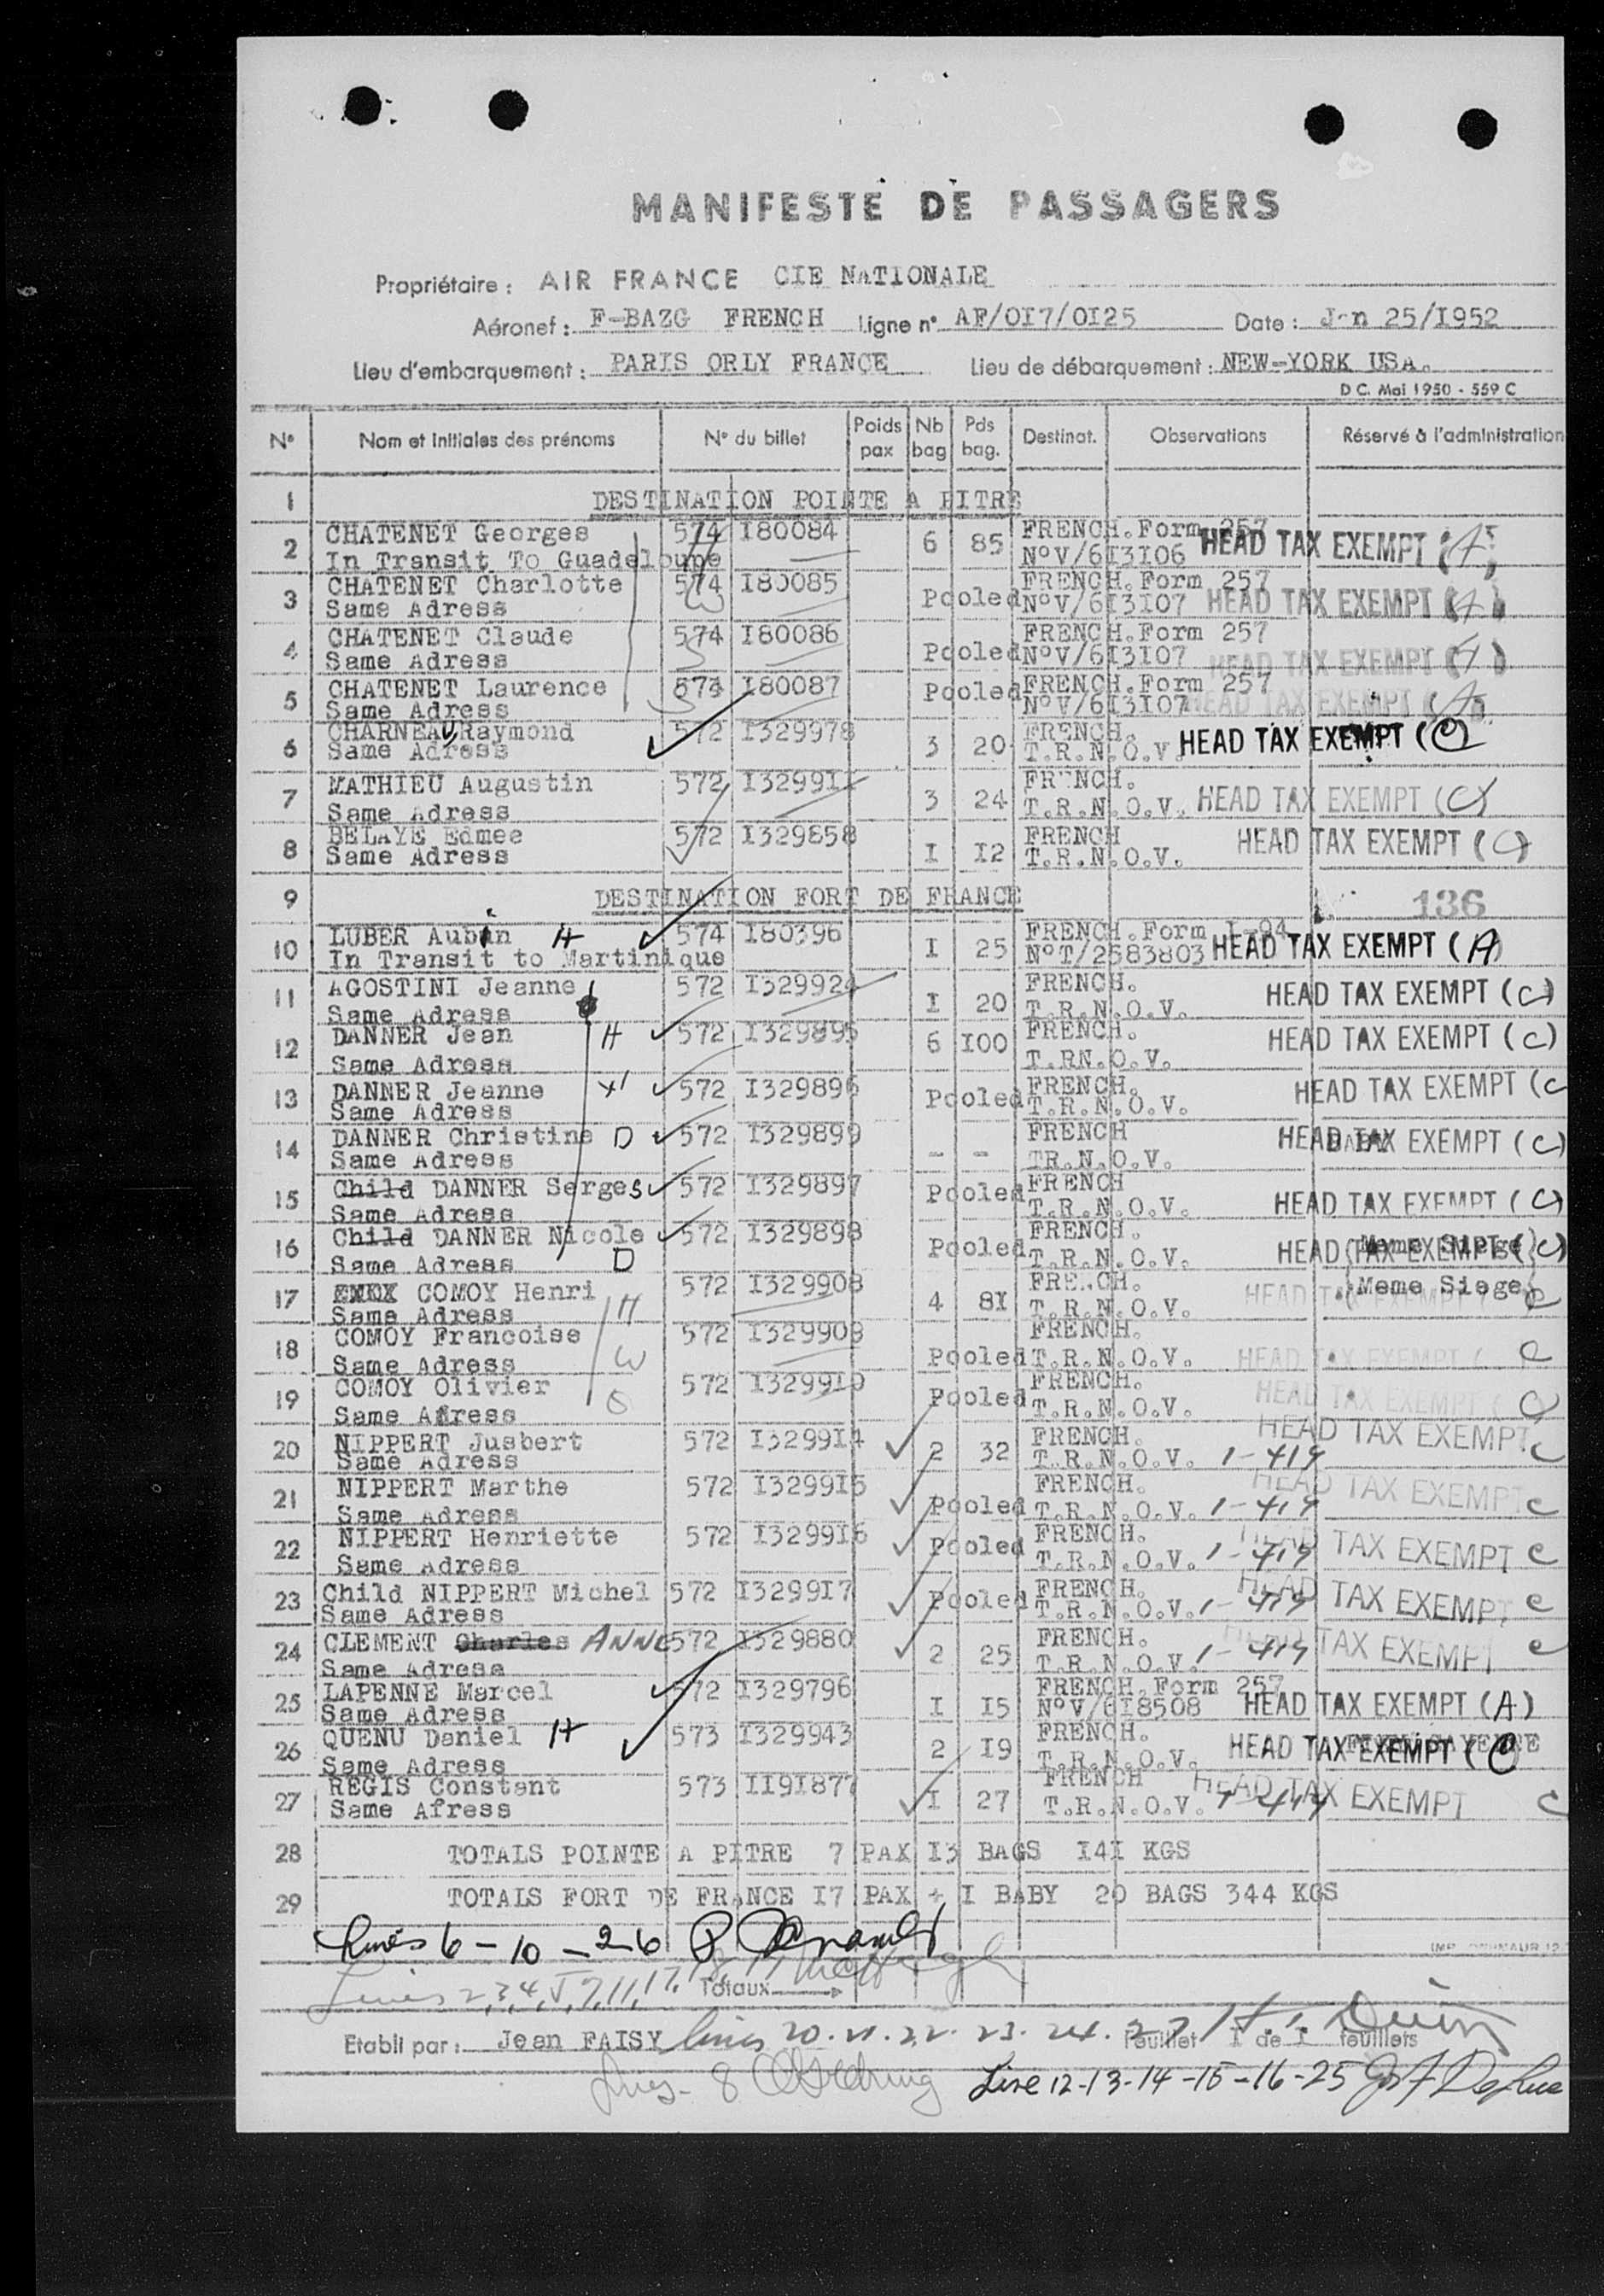 MANIFESTE DE PASSAGERS
Propriétaire : AIR FRANCE CIE NATIONALE
Aéronef : F-BAZG FRENCH Ligne n° AF/OI7/OI25 Date : Jan 25/I952
Lieu d'embarquement : PARIS ORLY FRANCE Lieu de débarquement : NEW-YORK USA.
D C. Mai 1950 - 559 C
N° Nom et initiales des prénoms N° du billet Poids pax Nb bag Pds bag. Destinat. Observations Réservé à l'administration
1 DESTINATION POINTE A PITRE
2 CHATENET Georges 574 I80084 6 85 FRENCH.Form 257
In Transit To Guadeloupe N°V/6I3I06 HEAD TAX EXEMPT (A)
3 CHATENET Charlotte 574 I80085 Pooled FRENCH.Form 257
Same Adress W N°V/6I3I07 HEAD TAX EXEMPT (A)
4 CHATENET Claude 574 I80086 Pooled FRENCH.Form 257
Same Adress S N°V/6I3I07 HEAD TAX EXEMPT (A)
5 CHATENET Laurence 574 I80087 Pooled FRENCH.Form 257
Same Adress S N°V/6I3I07 HEAD TAX EXEMPT (A)
6 CHARNEAU Raymond 572 I329978 3 20 FRENCH.
Same Adress T.R.N.O.V. HEAD TAX EXEMPT (C)
7 MATHIEU Augustin 572 I32991I 3 24 FRENCH.
Same Adress T.R.N.O.V. HEAD TAX EXEMPT (C)
8 BELAYE Edmee 572 I329858 I I2 FRENCH
Same Adress T.R.N.O.V. HEAD TAX EXEMPT (C)
9 DESTINATION FORT DE FRANCE 136
10 LUBER Aubin H 574 I80396 I 25 FRENCH.Form I-94
In Transit to Martinique N°T/2583803 HEAD TAX EXEMPT (A)
11 AGOSTINI Jeanne 572 I329924 I 20 FRENCH.
Same Adress T.R.N.O.V. HEAD TAX EXEMPT (C)
12 DANNER Jean H 572 I329895 6 I00 FRENCH.
Same Adress T.RN.O.V. HEAD TAX EXEMPT (C)
13 DANNER Jeanne 572 I329896 Pooled FRENCH.
Same Adress T.R.N.O.V. HEAD TAX EXEMPT (C
14 DANNER Christine D 572 I329899 - - FRENCH BABY
Same Adress TR.N.O.V. HEAD TAX EXEMPT (C)
15 Child DANNER Serges 572 I329897 Pooled FRENCH
Same Adress T.R.N.O.V. HEAD TAX EXEMPT (C)
16 Child DANNER Nicole 572 I329898 Pooled FRENCH. Meme Siege
Same Adress D T.R.N.O.V. HEAD TAX EXEMPT (C)
17 COMOY Henri 572 I329908 4 8I FRENCH. Meme Siege
Same Adress H T.R.N.O.V. HEAD TAX EXEMPT C
18 COMOY Francoise 572 I329909 Pooled FRENCH.
Same Adress W T.R.N.O.V. HEAD TAX EXEMPT ( C
19 COMOY Olivier 572 I3299I0 Pooled FRENCH.
Same Adress T.R.N.O.V. HEAD TAX EXEMPT ( C)
20 NIPPERT Jusbert 572 I3299I4 2 32 FRENCH.
Same Adress T.R.N.O.V. 1-419 HEAD TAX EXEMPT C
21 NIPPERT Marthe 572 I3299I5 Pooled FRENCH.
Same Adress T.R.N.O.V. 1-419 HEAD TAX EXEMPT C
22 NIPPERT Henriette 572 I3299I6 Pooled FRENCH.
Same Adress T.R.N.O.V. 1-419 HEAD TAX EXEMPT C
23 Child NIPPERT Michel 572 I3299I7 Pooled FRENCH.
Same Adress T.R.N.O.V. 1-419 HEAD TAX EXEMPT C
24 CLEMENT Charles ANNE 572 I329880 2 25 FRENCH.
Same Adress T.R.N.O.V. 1-419 HEAD TAX EXEMPT C
25 LAPENNE Marcel 572 I329796 I I5 FRENCH.Form 257
Same Adress N°V/6I8508 HEAD TAX EXEMPT (A)
26 QUENU Daniel H 573 I329943 2 I9 FRENCH.
Same Adress T.R.N.O.V. HEAD TAX EXEMPT (C
27 REGIS Constant 573 II9I877 I 27 FRENCH
Same Afress T.R.N.O.V. 1-419 HEAD TAX EXEMPT C
28 TOTALS POINTE A PITRE 7 PAX I3 BAGS I4I KGS
29 TOTALS FORT DE FRANCE I7 PAX + I BABY 20 BAGS 344 KGS
Lines 6 - 10 - 26
Lines 2,3,4,5,7,11,17,18,19 Totaux
Etabli par : Jean FAISY lines 20. 21. 22. 23. 24. 27 Feuillet I de I feuillets
Lines - 8 Line 12-13-14-15-16-25